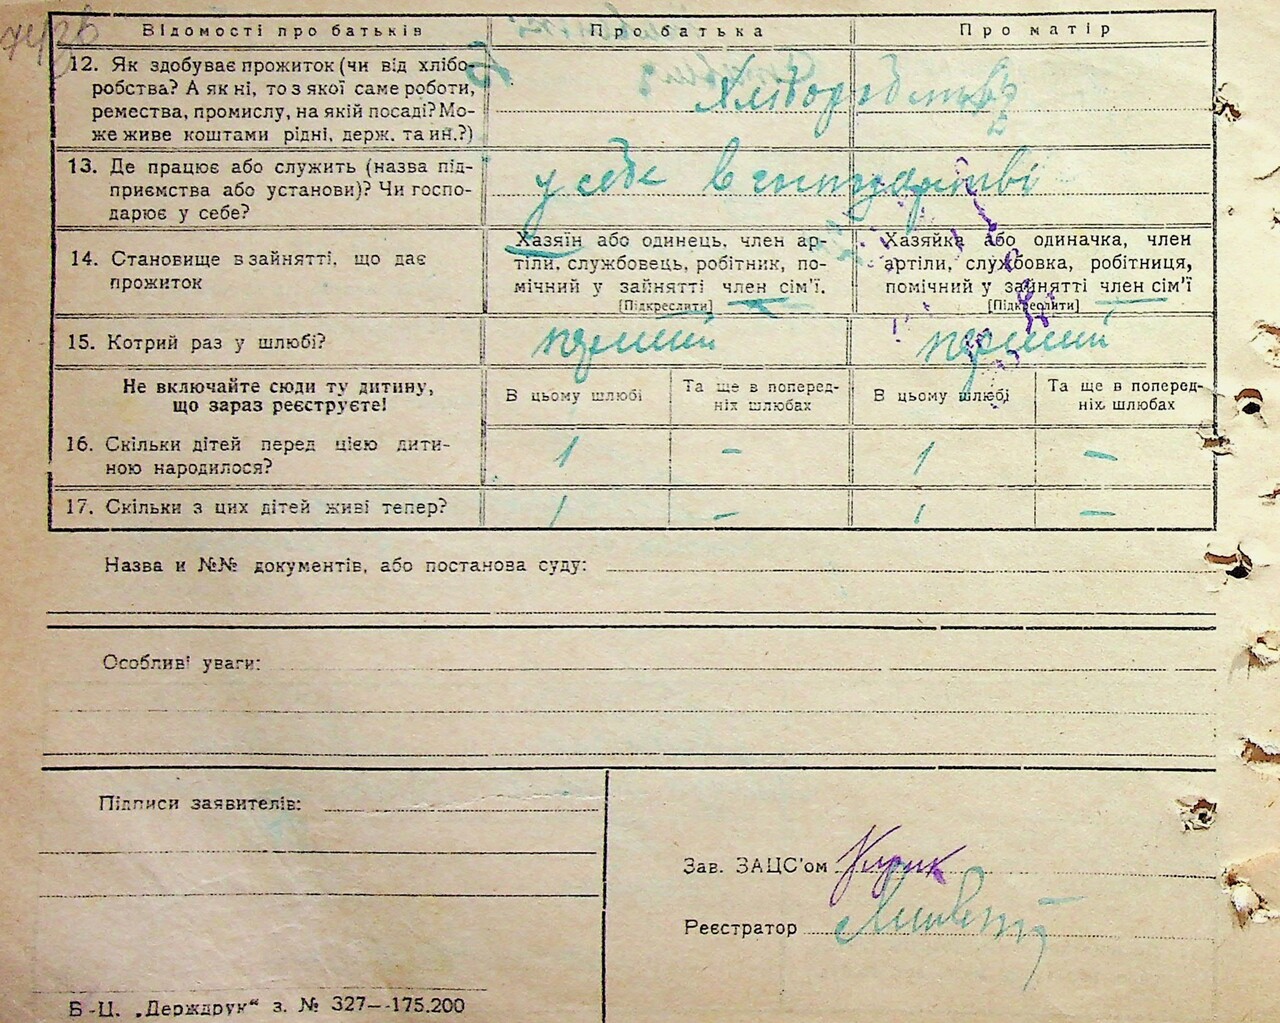 Відомості про батьків Про батька Про матір
12. Як здобуває прожиток (чи від хлібо-
робства? А як ні, то з якої саме роботи,
ремества, промислу, на якій посаді? Мо-
же живе коштами рідні, держ. та ин.?)
13. Де працює або служить (назва під-
приємства або установи)? Чи госпо-
дарює у себе?
у себе в господарстві
14. Становище в зайнятті, що дає
прожиток
Хазяїн або одинець, член ар-
тіли, службовець, робітник, по-
мічний у зайнятті член сім'ї.
[Підкреслити]
Хазяйка або одиначка, член
артіли, службовка, робітниця,
помічний у зайнятті член сім'ї
[Підкреслити]
15. Котрий раз у шлюбі? перший перший
Не включайте сюди ту дитину,
що зараз реєструєте!
В цьому шлюбі
Та ще в поперед-
ніх шлюбах
В цьому шлюбі
Та ще в поперед-
ніх шлюбах
16. Скільки дітей перед цією дити-
ною народилося?
1 – 1 –
17. Скільки з цих дітей живі тепер? 1 – 1 –
Назва и №№ документів, або постанова суду:
Особливі уваги:
Підписи заявителів:
Зав. ЗАЦС'ом
Реєстратор
Б-Ц. „Держдрук“ з. № 327—175.200